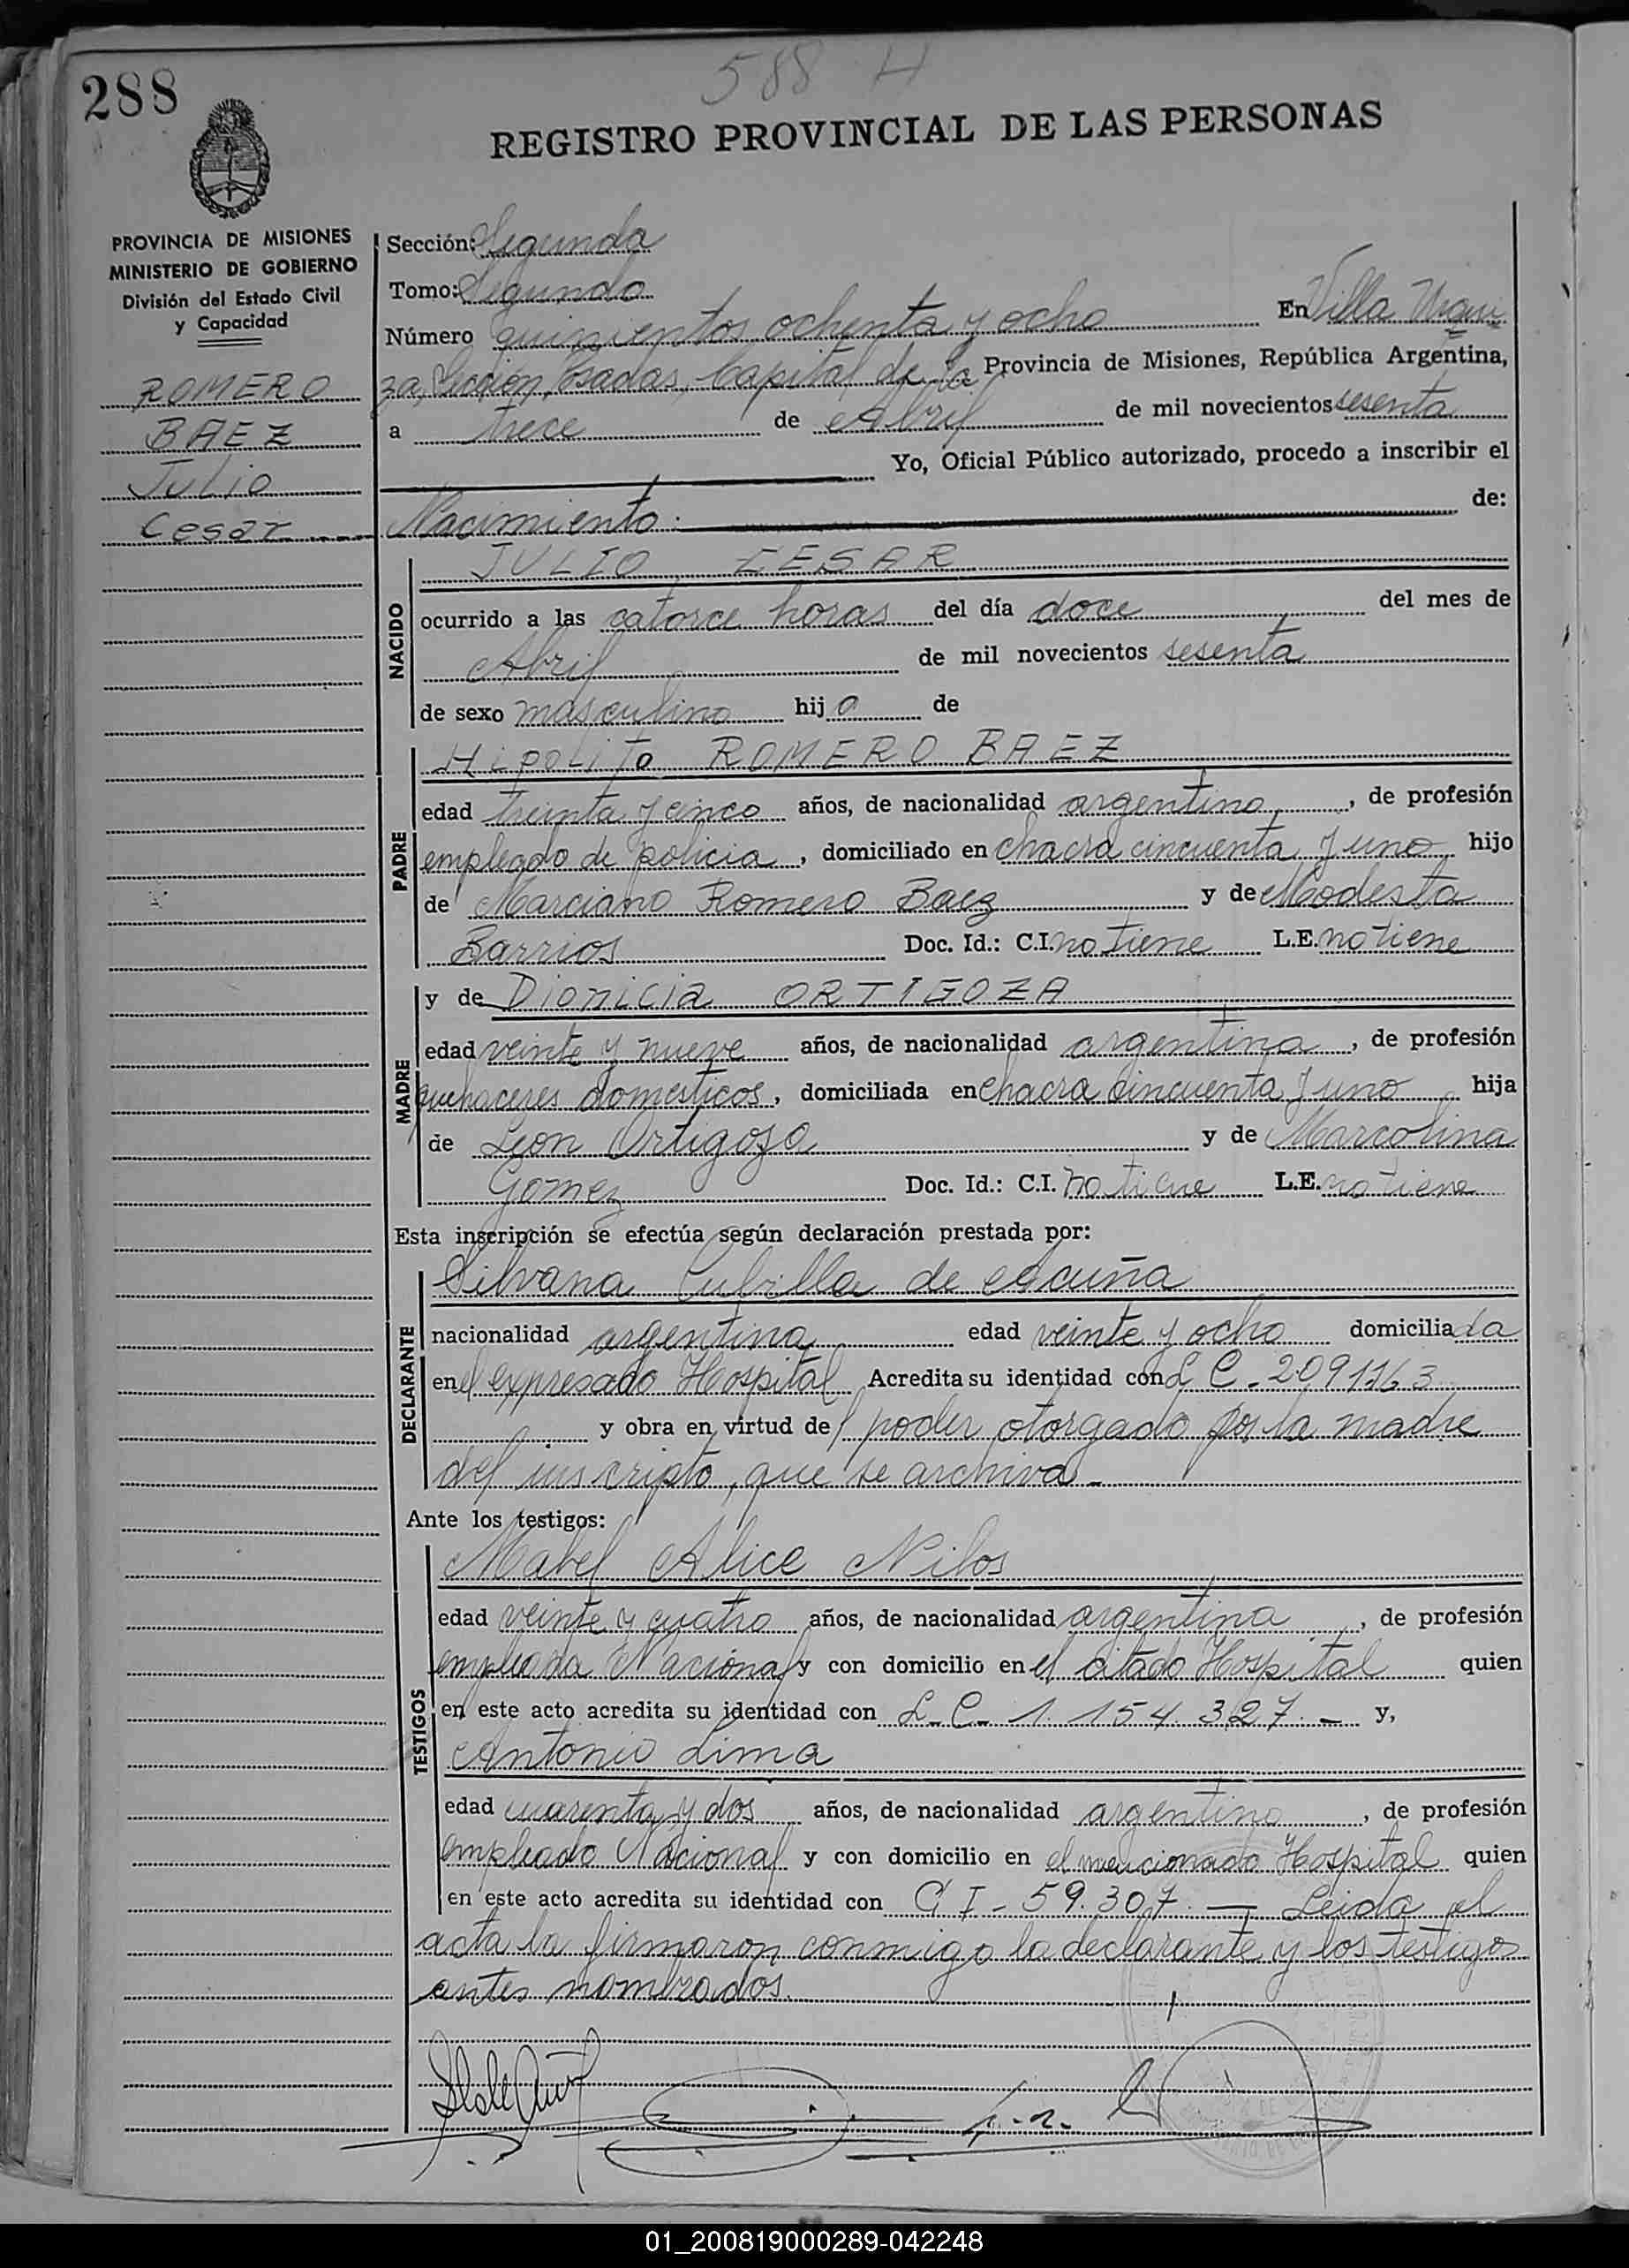 588 H
288
REGISTRO PROVINCIAL DE LAS PERSONAS
PROVINCIA DE MISIONES
MINISTERIO DE GOBIERNO
División del Estado Civil
y Capacidad
ROMERO
BAEZ
Julio
Cesar
Sección: Segunda
Tomo: Segundo
Número quinientos ochenta y ocho En Villa Urqui
za, Sección Posadas, Capital de la Provincia de Misiones, República Argentina,
a trece de Abril de mil novecientos sesenta
Yo, Oficial Público autorizado, procedo a inscribir el
Nacimiento: de:
NACIDO
JULIO CESAR
ocurrido a las catorce horas del día doce del mes de
Abril de mil novecientos sesenta
de sexo masculino hijo de
PADRE
Hipolito ROMERO BAEZ
edad treinta y cinco años, de nacionalidad argentino, de profesión
empleado de policia, domiciliado en chacra cincuenta y uno hijo
de Marciano Romero Baez y de Modesta
Barrios Doc. Id.: C.I. no tiene L.E. no tiene
MADRE
y de Dionicia ORTIGOZA
edad veinte y nueve años, de nacionalidad argentina, de profesión
quehaceres domesticos, domiciliada en chacra cincuenta y uno hija
de Leon Ortigoza y de Marcolina
Gomez Doc. Id.: C.I. no tiene L.E. no tiene
Esta inscripción se efectúa según declaración prestada por:
DECLARANTE
Silvana Cubilla de Acuña
nacionalidad argentina edad veinte y ocho domiciliada
en el expresado Hospital Acredita su identidad con L C - 2091763
y obra en virtud del poder otorgado por la madre
del inscripto, que se archiva -
Ante los testigos:
TESTIGOS
Mabel Alice Nilos
edad veinte y cuatro años, de nacionalidad argentina, de profesión
empleada Nacional y con domicilio en el citado Hospital quien
en este acto acredita su identidad con L - C - 1.154.327. - y,
Antonio Lima
edad cuarenta y dos años, de nacionalidad argentino, de profesión
empleado Nacional y con domicilio en el mencionado Hospital quien
en este acto acredita su identidad con C I - 59.307. - Leida el
acta la firmaron conmigo la declarante y los testigos
antes nombrados.
01_200819000289-042248